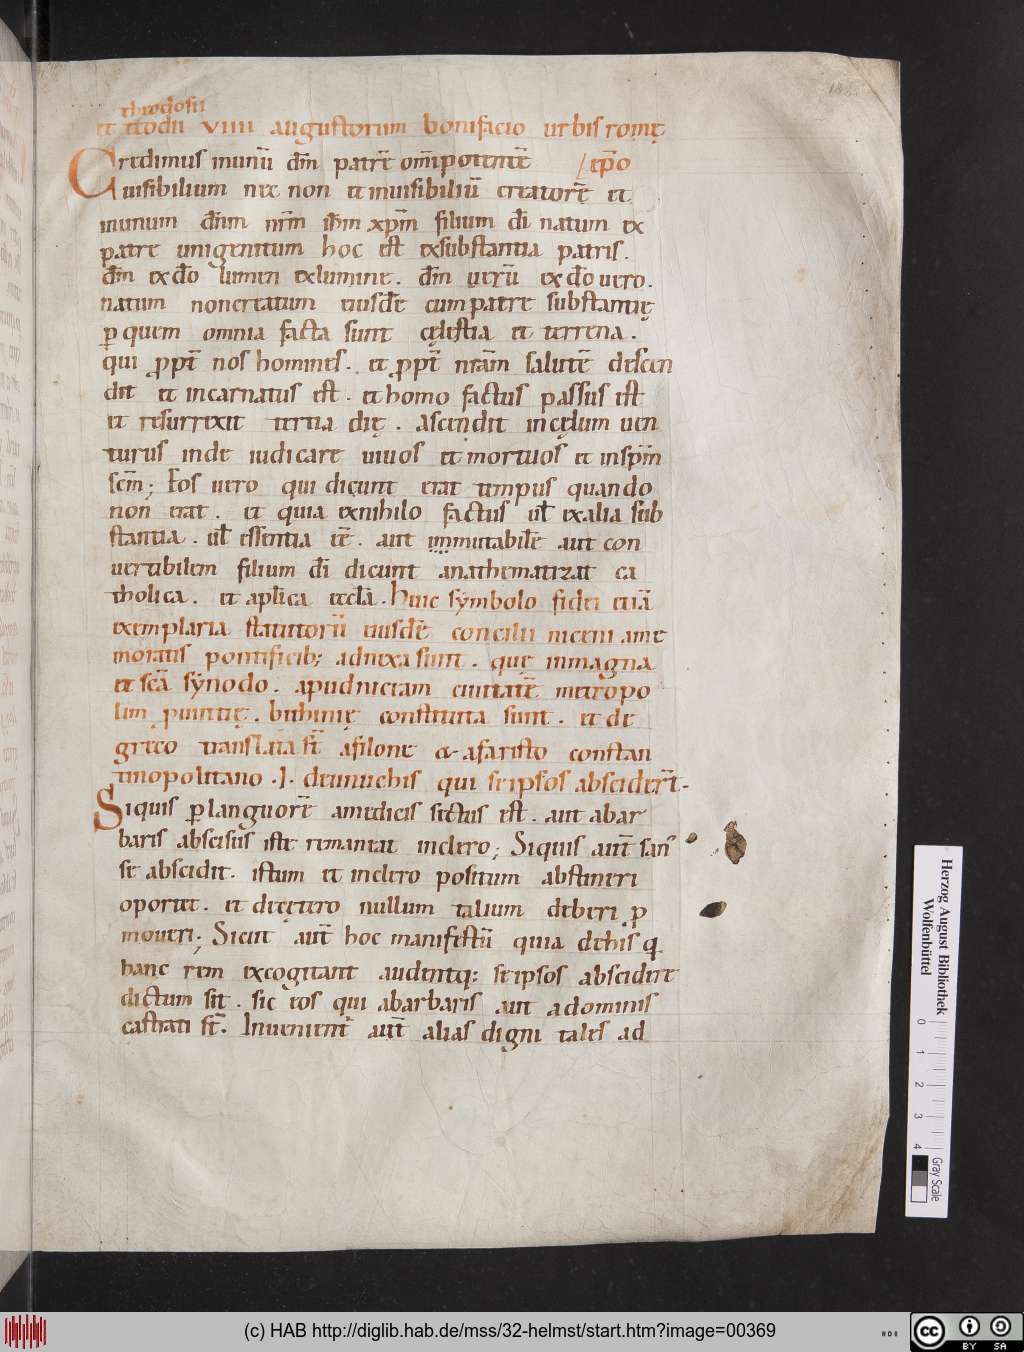 theodosii
et teodu VIIII augustorum bonifacio urbis romę
Credimus inunū dm̄ patrē om̄ipotentē /ep̄o
uisibilium nec non et inuisibiliū creatorē et
inunum dn̄m nr̄m ih̄m xp̄m filium dī natum ex
patre unigenitum hoc est exsubstantia patris.
dm̄ exdō lumen exlumine. dm̄ uerū exdō uero.
natum noncreatum eiusdē cumpatre substantię
ꝑ quem omnia facta sunt cęlestia et terrena.
qui ꝓpt̄ nos homines. et ꝓpt̄ nrām salutē descen
dit et incarnatus est. et homo factus passus est
et resurrexit tertia die. ascendit incęlum uen
turus inde iudicare uiuos et mortuos et insp̄m
sc̄m; Eos uero qui dicunt erat tempus quando
non erat. et quia exnihilo factus ul̄ exalia sub
stantia. ul̄ essentia eē. aut inmutabilē aut con
uertibilem filium dī dicunt anathematizat ca
tholica. et aplīca eccla. Huic symbolo fidei etiā
exemplaria statutorū eiusdē concilii niceni ame
moratis pontificib; adnexa sunt. quę inmagna
et scā synodo. apudniciam ciuitatē metropo
lim ꝓuintię. bithinię constituta sunt. et de
greco translata st̄ afilone & afaristo constan
tinopolitano .I. deeunuchis qui seipsos absciderī.
Siquis ꝑ languorē amedicis sectus est. aut abar
baris abscisus iste remaneat inclero; Siquis aut̄ san⁹
se abscidit. istum et inclero positum abstineri
oportet. et deętero nullum talium deberi ꝓ
moueri; Sicut aut̄ hoc manifestū quia dehis q̨
hanc rem excogitant audentq; seipsos abscidere
dictum sit. sic eos qui abarbaris aut adominis
castrati st̄. Inuenient̄ aut̄ alias digni tales ad
Herzog August Bibliothek
Wolfenbüttel
0 1 2 3 4
Gray Scale
(c) HAB http://diglib.hab.de/mss/32-helmst/start.htm?image=00369
cc BY SA